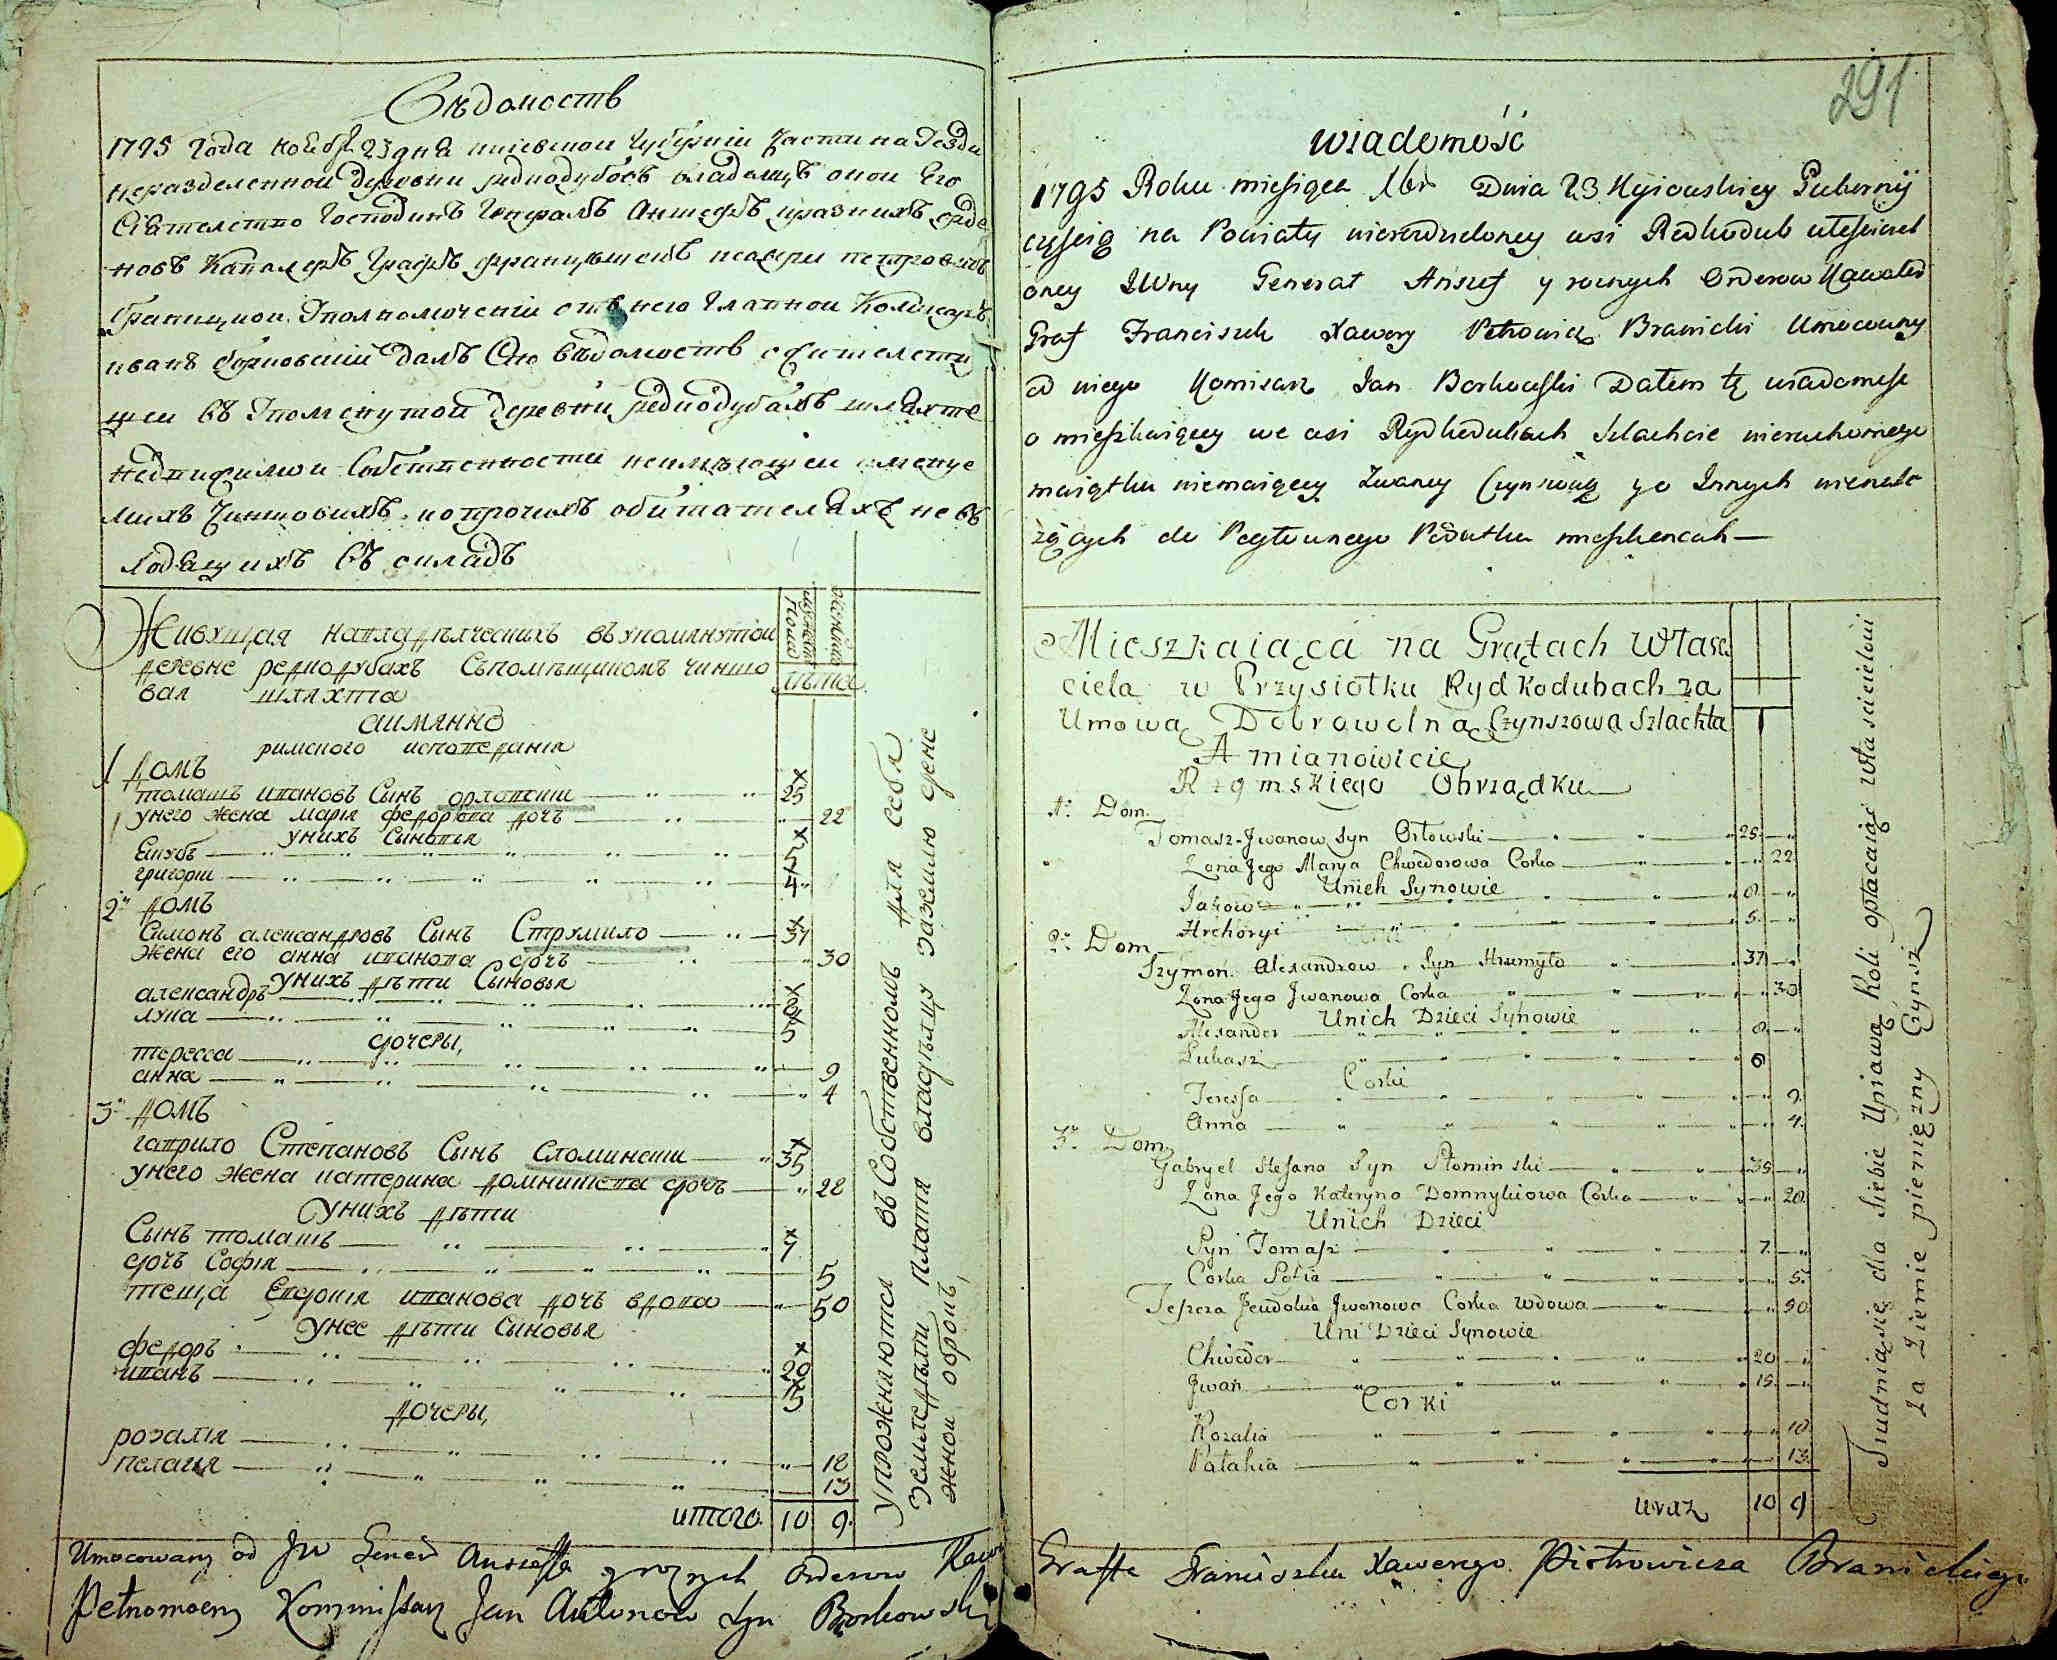 Вѣдомоств
1795 года ноебр 23 дня киевской губерніи части на Уезди
неразделенной деревни редкодубовъ владелецъ оной Его
Сіятелство Господинъ Генералъ Аншефъ и разнихъ орде
новъ Кавалеръ Графъ Францышекъ ксаверы петровичъ
браницкой. Уполномоченій отъ него главной Комисаръ
иванъ борковскій далъ Сію вѣдомоств о обителству
щеи въ Упомянутой деревни редкодубахъ шляхте
недвижимои Собственности неимѣющеи именуе
михъ Чиншовихъ. и о прочихъ обитателяхъ не въ
ходящихъ въ окладъ
Живущая на владѣлческихъ въ упомянутои
деревне редкодубахъ Съ помѣщикомъ чиншо
вая шляхта
а имянно
римского исповедания
мужеска полу
женска
лѣта
1 Домъ
томашъ ивановъ Сынъ орловски 25
у него жена мария федорова дочъ 22
у нихъ Сыновья
Якубъ 5
григори 4
2й домъ
Симонъ александровъ Сынъ Струмило 37
жена его анна иванова дочъ 30
у нихъ дѣти Сыновья
александръ 8
лука 5
дочеры,
тересса 9
анна 4
3й домъ
гаврило Степановъ Сынъ Сломински 35
у него жена катерина домникова дочъ 22
у нихъ дѣти
Сынъ томашъ 7
дочъ Софія 5
теща Евдокия иванова дочъ вдова 50
у нее дѣти Сыновья
федоръ 20
иванъ 15
дочеры,
розалія 18
пелагия 13
итого. 10 9.
упрожняются въ Собственномъ для себя
земледѣлти плата владѣлцу за землю дене
жной оброкъ,
Umocowany od JW Generał Anszeffa y roznych Orderow Kaw
Pełnomocny Kommissarz Jan Antonow Syn Borkowski
291
wiadomość
1795 Roku miesiąca 9br Dnia 23 Kyiowskiey Guberny
częścią na Powiaty nierozdzieloney wsi Redkodub właściciel
oney JWny Generał Anszef y roznych Orderow Kawaler
Graf Franciszek Xawery Petrowicz Branicki Umocowany
od niego Komisarz Jan Borkowski Dałem tę wiadomość
o mieszkaiącey we wsi Rydkodubach Szlachcie nieruchomego
maiątku niemaiącey zwaney Czynszową y o Innych nienale
żących do Pogłownego Podatku mieszkancach
Mieszkaiąca na Grątach Własc
ciela w Przysiołku Rydkodubach za
Umową Dobrowolną Czynszowa Szlachta
A mianowicie
Rzymskiego Obrządku
1. Dom
Tomasz Jwanow Syn Orłowski 25.
Zona Jego Marya Chwedorowa Corka 22
Unich Synowie
Jakow 8.
Hrehoryi 5.
2. Dom
Szymon Alexandrow Syn Strumyło 37
Zona Jego Jwanowa Corka 30
Unich Dzieci Synowie
Alexander 8.
Łukasz 6
Corki
Teressa 9.
Anna 4.
3. Dom
Gabryel Stefana Syn Słominski 35
Zona Jego Kateryna Domnykowa Corka 20.
Unich Dzieci
Syn Tomasz 7.
Corka Sofia 5.
Teszcza Jeudokia Jwanowa Corka wdowa 50
Uni Dzieci Synowie
Chwedor 20
Jwan 15.
Corki
Rozalia 18
Pałahia 13.
wraz 10 9
Trudniąsię dla siebie Uprawą Roli opłacaiąc właścicielowi
za Ziemie pieniężny Czynsz
Graffa Franciszka Xawerego Piotrowicza Branickiego